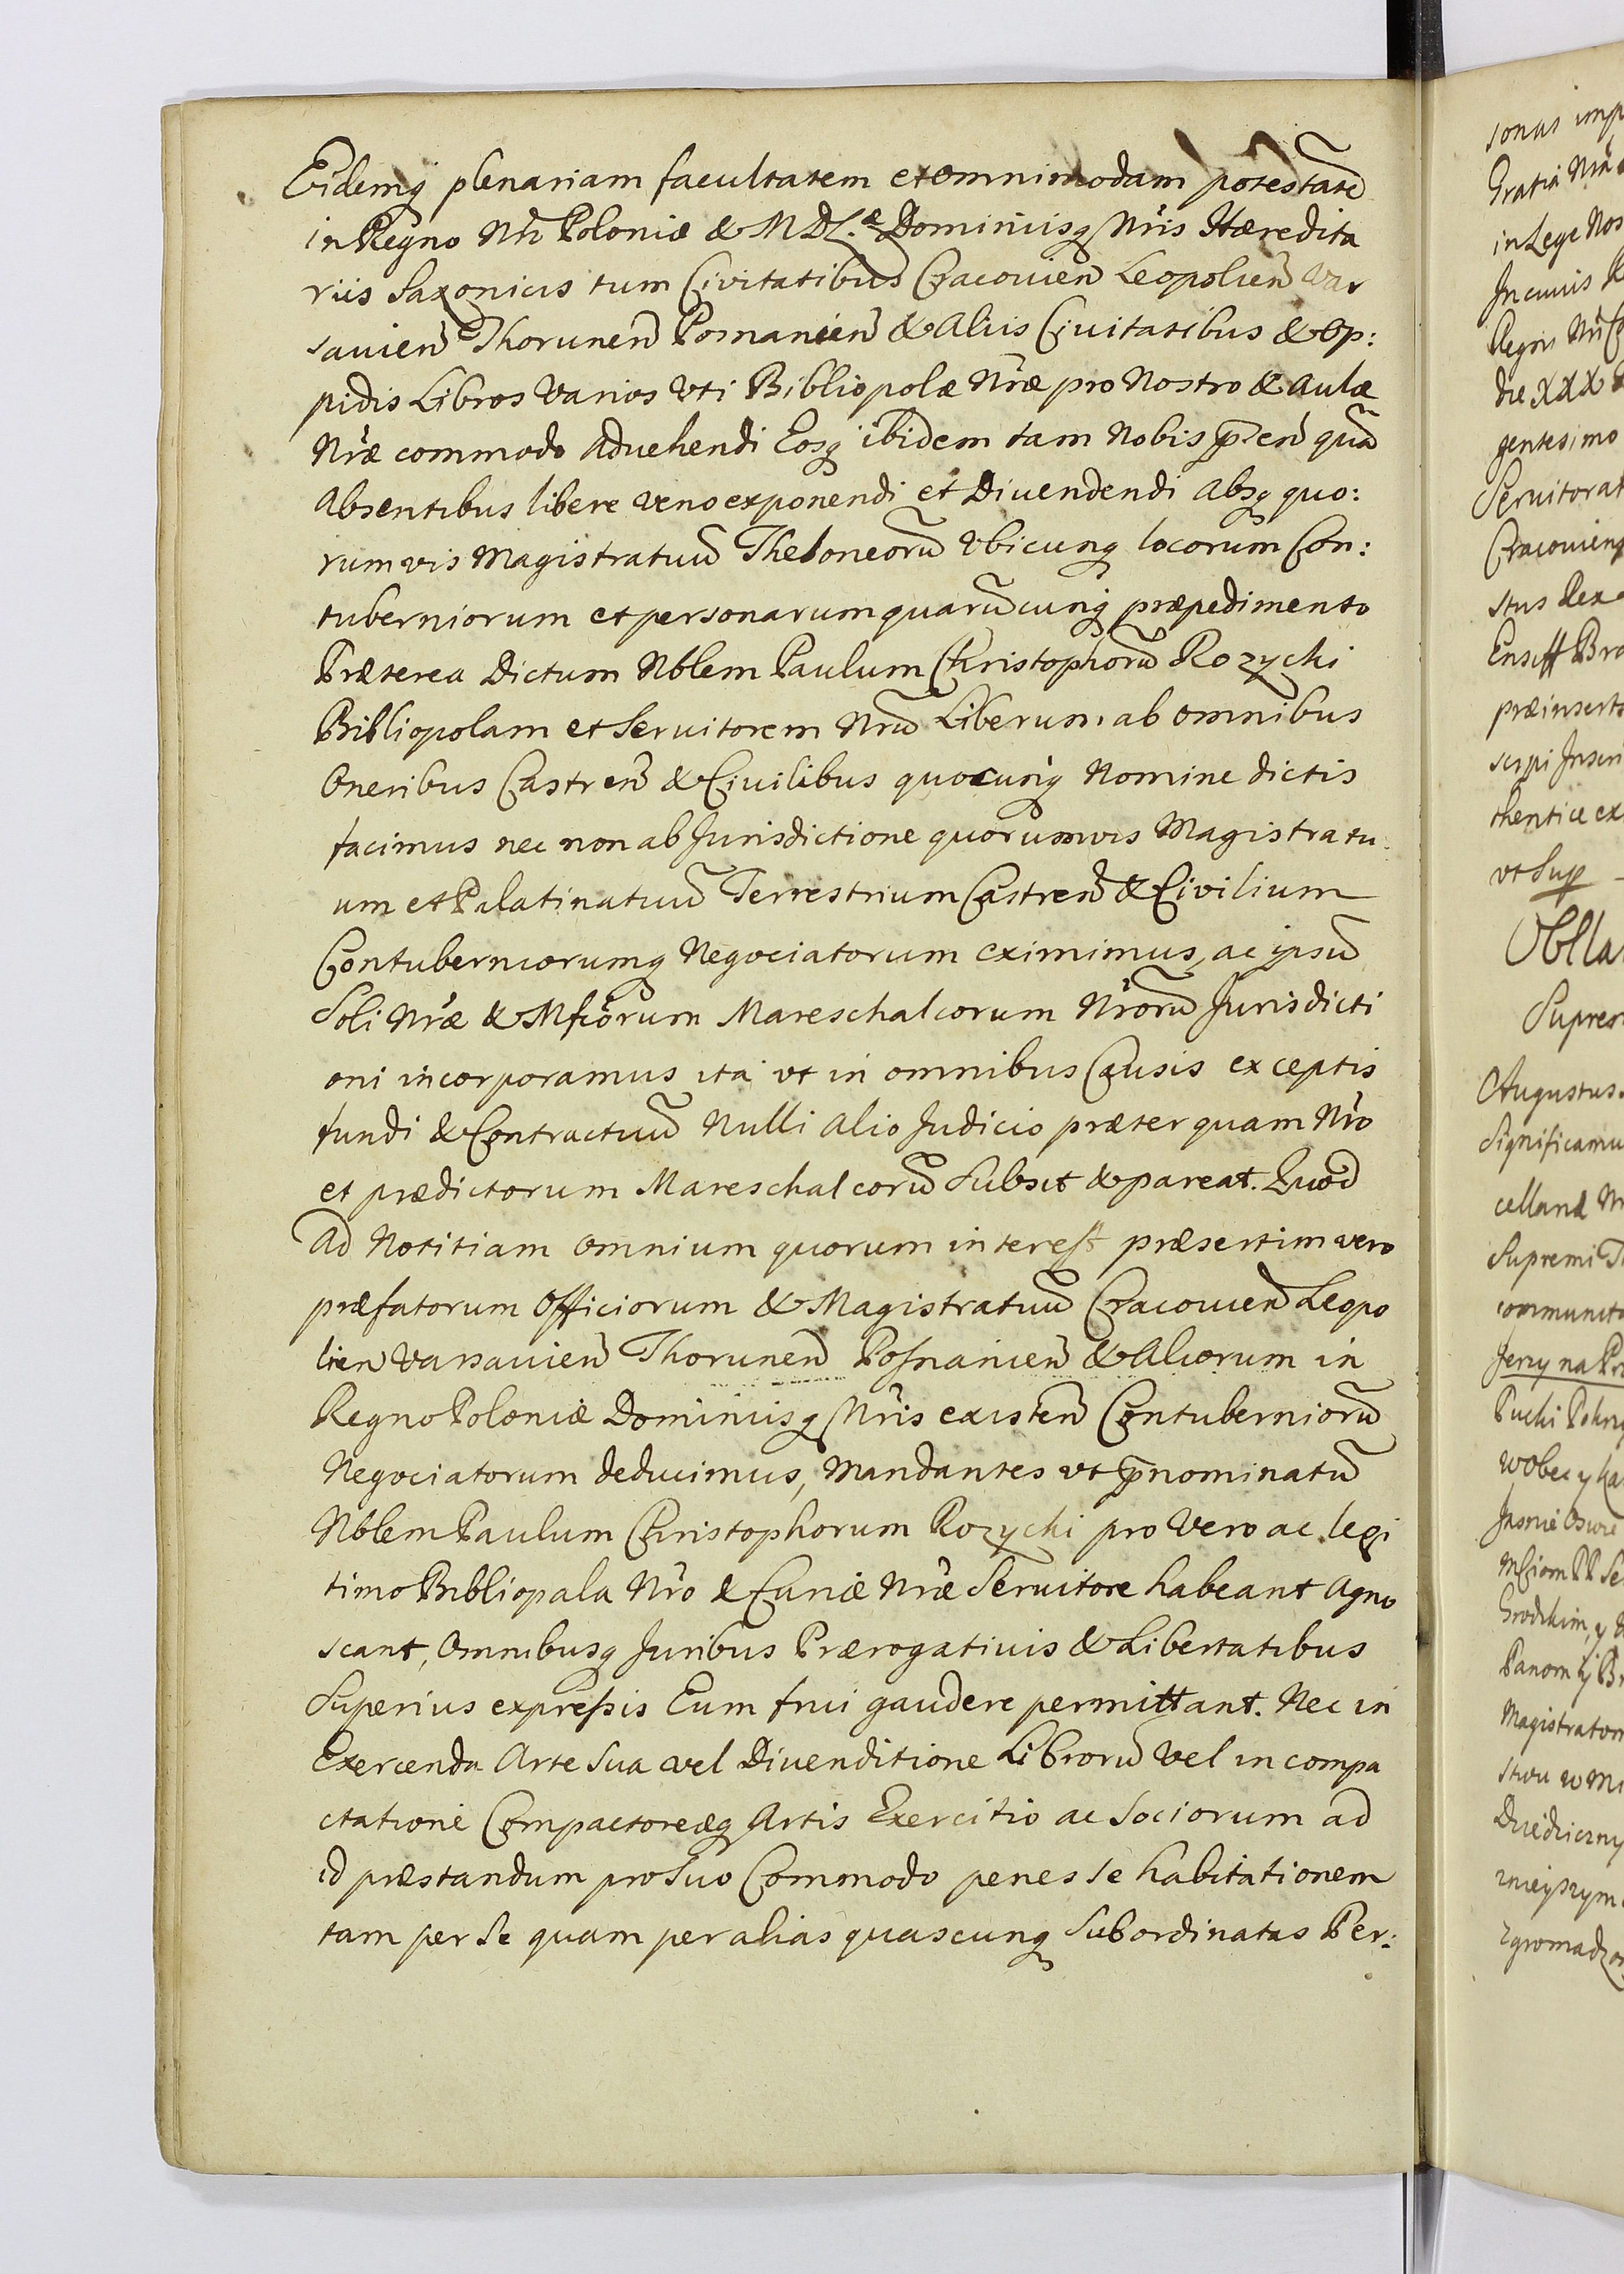 Eidemq̃ plenariam facultatem et omnimodam potestatẽ
in Regno Nr̃o Poloniæ & M D L.æ Dominiisq Nr̃is Hæredita
riis Saxonicis tum Civitatibus Cracouien̄ Leopolien̄ Var
sauien̄ Thorunen̄ Posnanien̄ & Aliis Ciuitatibus & Op:
pidis Libros Varios Vti Bibliopolæ Nr̃æ pro Nostro & Aulæ
Nr̃æ commodo Aduehendi Eosq̃ ibidem tam Nobis p̃sen̄ quã
Absentibus libere veno exponendi et Diuendendi Absq quo:
rumvis Magistratuũ Theloneorũ Vbicunq locorum Con:
tuberniorum et personarum quarũcunq̃ præpedimento
Præterea Dictum Nblem Paulum Christophorũ Rozycki
Bibliopolam et Seruitorem Nrũ Liberum ab omnibus
Oneribus Castren̄ & Ciuilibus quocunq̃ Nomine dictis
facimus nec non ab Jurisdictione quorumvis Magistratu
um et Palatinatuũ Terrestrium Castren̄ & Civilium
Contuberniorumq Negociatorum eximimus, ac ipsũ
Soli Nr̃æ & Mfic̃orum Mareschalcorum Nr̃orũ Jurisdicti
oni incorporamus ita vt in omnibus Causis exceptis
fundi & Contractuũ Nulli Alio Judicio præterquam Nr̃o
et prædictorum Mareschalcorũ Subsit & pareat. Quod
Ad Notitiam omnium quorum interest præsertim vero
præfatorum Officiorum & Magistratuũ Cracouien̄ Leopo
lien̄ Varsauien̄ Thorunen̄ Posnanien̄ & Aliorum in
Regno Poloniæ Dominiisq Nr̃is existen̄ Contuberniorũ
Negociatorum deducimus, Mandantes vt p̃nominatũ
Nblem Paulum Christophorum Rozycki pro Vero ac legi
timo Bibliopala Nr̃o & Curiæ Nr̃æ Seruitore habeant Agno
scant, Omnibusq Juribus Prærogativis & Libertatibus
Superius expressis Eum frui gaudere permittant. Nec in
Exercenda Arte Sua vel Diuenditione Librorũ Vel in compa
ctatione Compactoreæq Artis Exercitio ac Sociorum ad
id præstandum pro Suo Commodo penes se habitationem
tam per Se quam per alias quascunq Subordinatas Per:
sonas
Gratia
in Lege
Regni
die XXX
gentesimo
Cracouien
stus Rex
præinserta
vt Sup
Augustus
Supremi
Jerzy na
Panom y